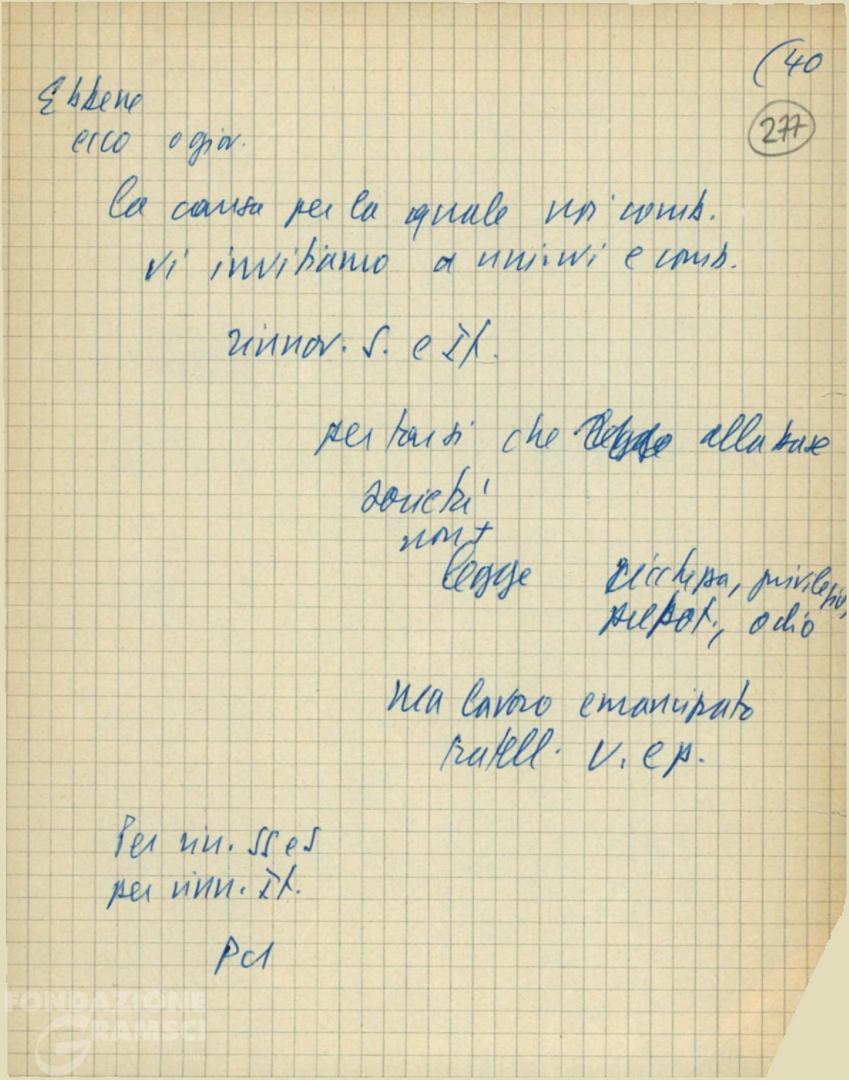 (40
277
Ebbene
ecco o giov.
la causa per la quale noi comb.
vi invitiamo a unirvi e comb.
rinnov. S. e It.
per farsi che alla base
società
non +
legge ricchezza, privilegio,
prepot., odio
ma lavoro emancipato
fratell. v. e p.
Per rin. SS e S
per rinn. It.
PCI
FONDAZIONE
GRAMSCI